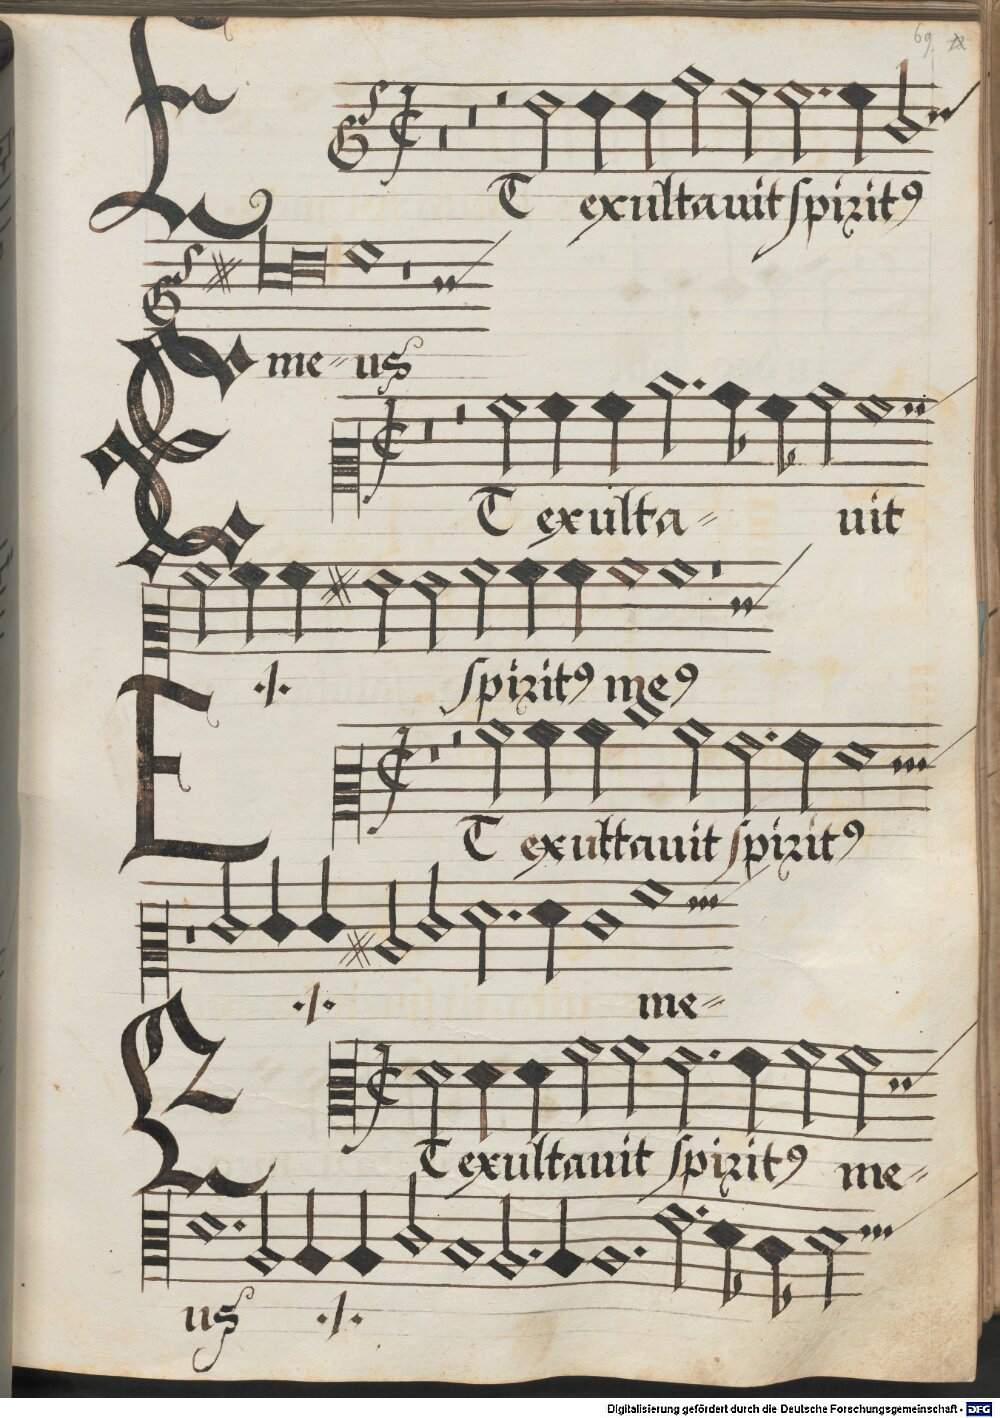 69
ET exultavit spiritꝰ
me-us
ET exulta- vit
./. spiritꝰ meꝰ
ET exultavit spiritꝰ
./. me-
ET exultavit spiritꝰ me-
us ./.
Digitalisierung gefördert durch die Deutsche Forschungsgemeinschaft - DFG